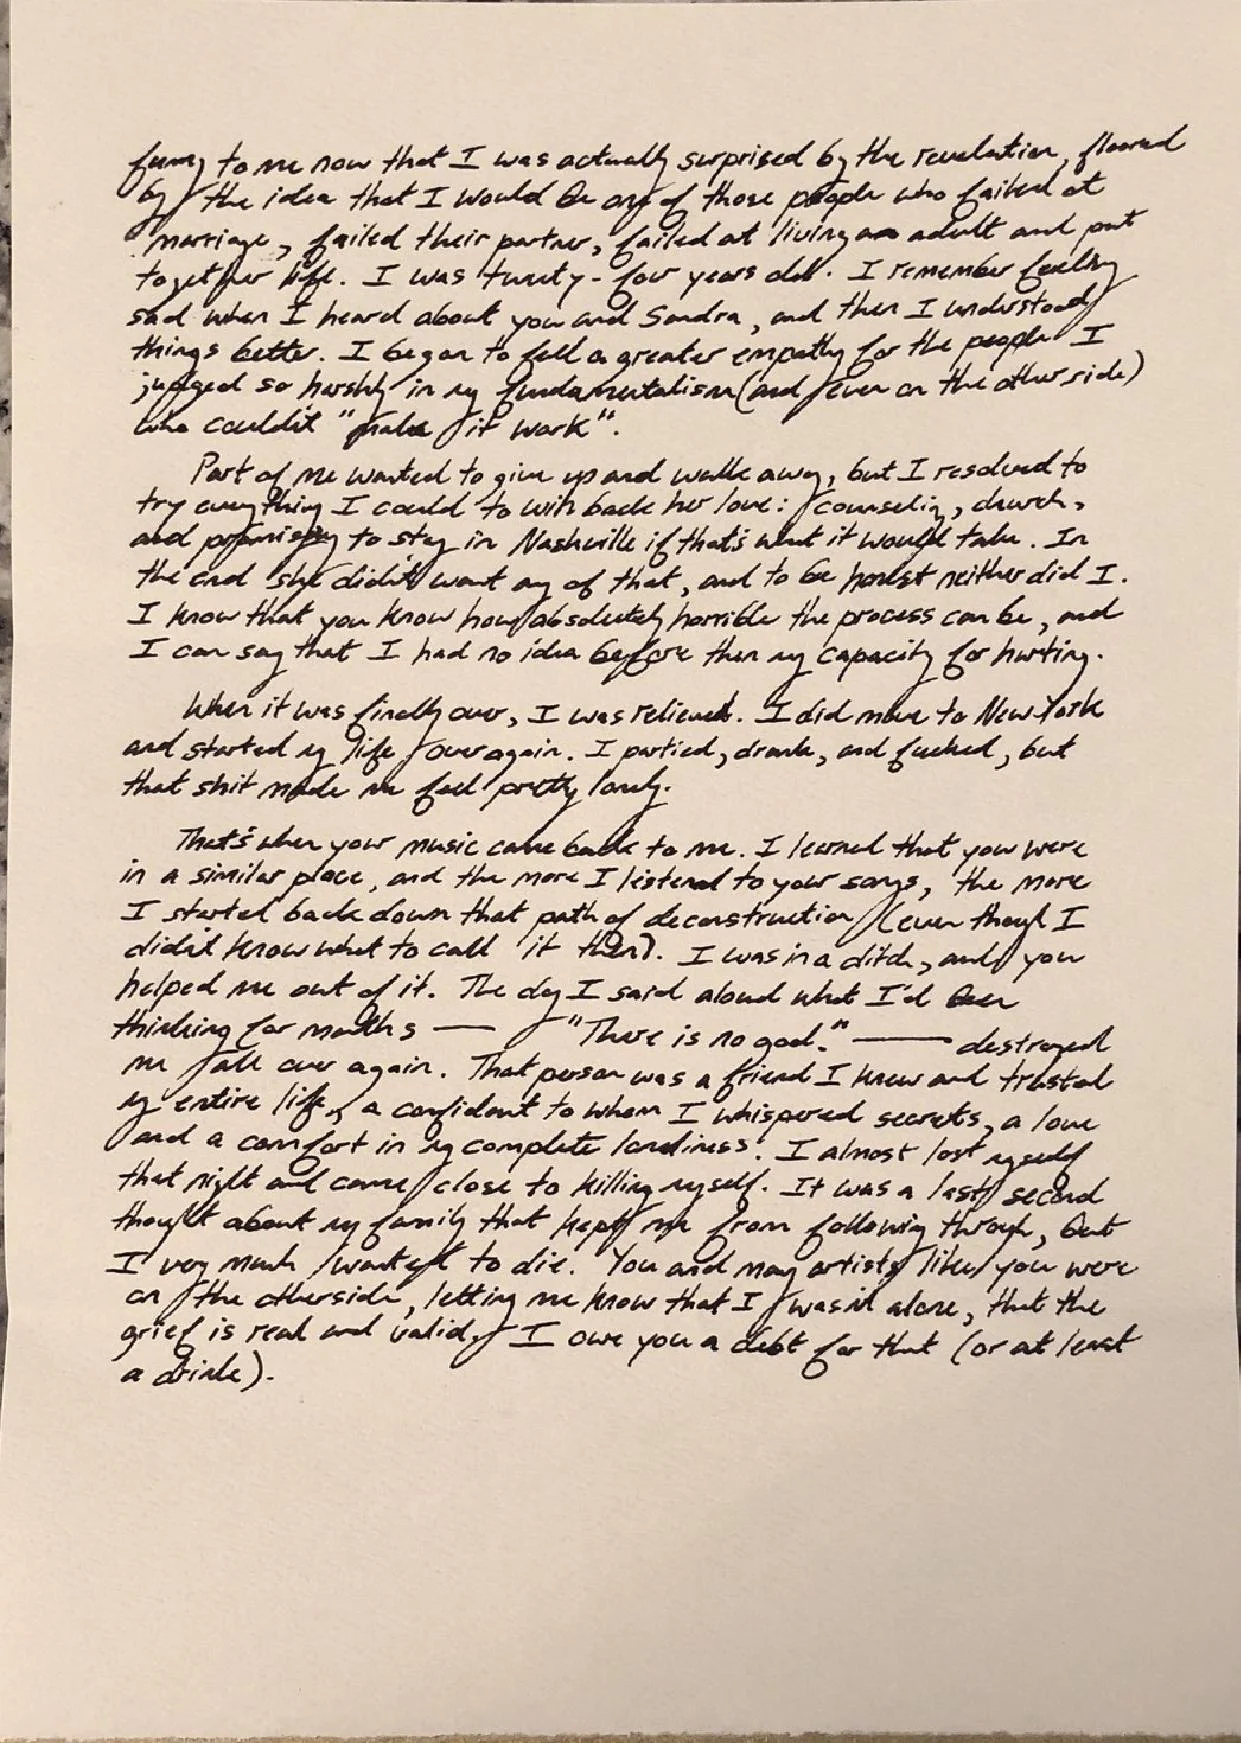 funny to me now that I was actually surprised by the revelation, floored
by the idea that I would be one of those people who failed at
marriage, failed their partner, failed at living an adult and put
together life. I was twenty-four years old. I remember feeling
sad when I heard about you and Sandra, and then I understood
things better. I began to fell a greater empathy for the people I
judged so harshly in my fundamentalism (and even on the other side)
who couldn't "make it work".
Part of me wanted to give up and walk away, but I resolved to
try everything I could to win back her love: counseling, church,
and promising to stay in Nashville if that's what it would take. In
the end she didn't want any of that, and to be honest neither did I.
I know that you know how absolutely horrible the process can be, and
I can say that I had no idea before then my capacity for hurting.
When it was finally over, I was relieved. I did move to New York
and started my life over again. I partied, drank, and fucked, but
that shit made me feel pretty lonely.
That's when your music came back to me. I learned that you were
in a similar place, and the more I listend to your songs, the more
I started back down that path of deconstruction (even though I
didn't know what to call it then). I was in a ditch, and you
helped me out of it. The day I said aloud what I'd been
thinking for months — "There is no god." — destroyed
me all over again. That person was a friend I knew and trusted
my entire life, a confidant to whom I whispered secrets, a love
and a comfort in my complete loneliness. I almost lost myself
that night and came close to killing myself. It was a last second
thought about my family that kept me from following through, but
I very much wanted to die. You and many artists like you were
on the otherside, letting me know that I wasn't alone, that the
grief is real and valid. I owe you a debt for that (or at least
a drink).